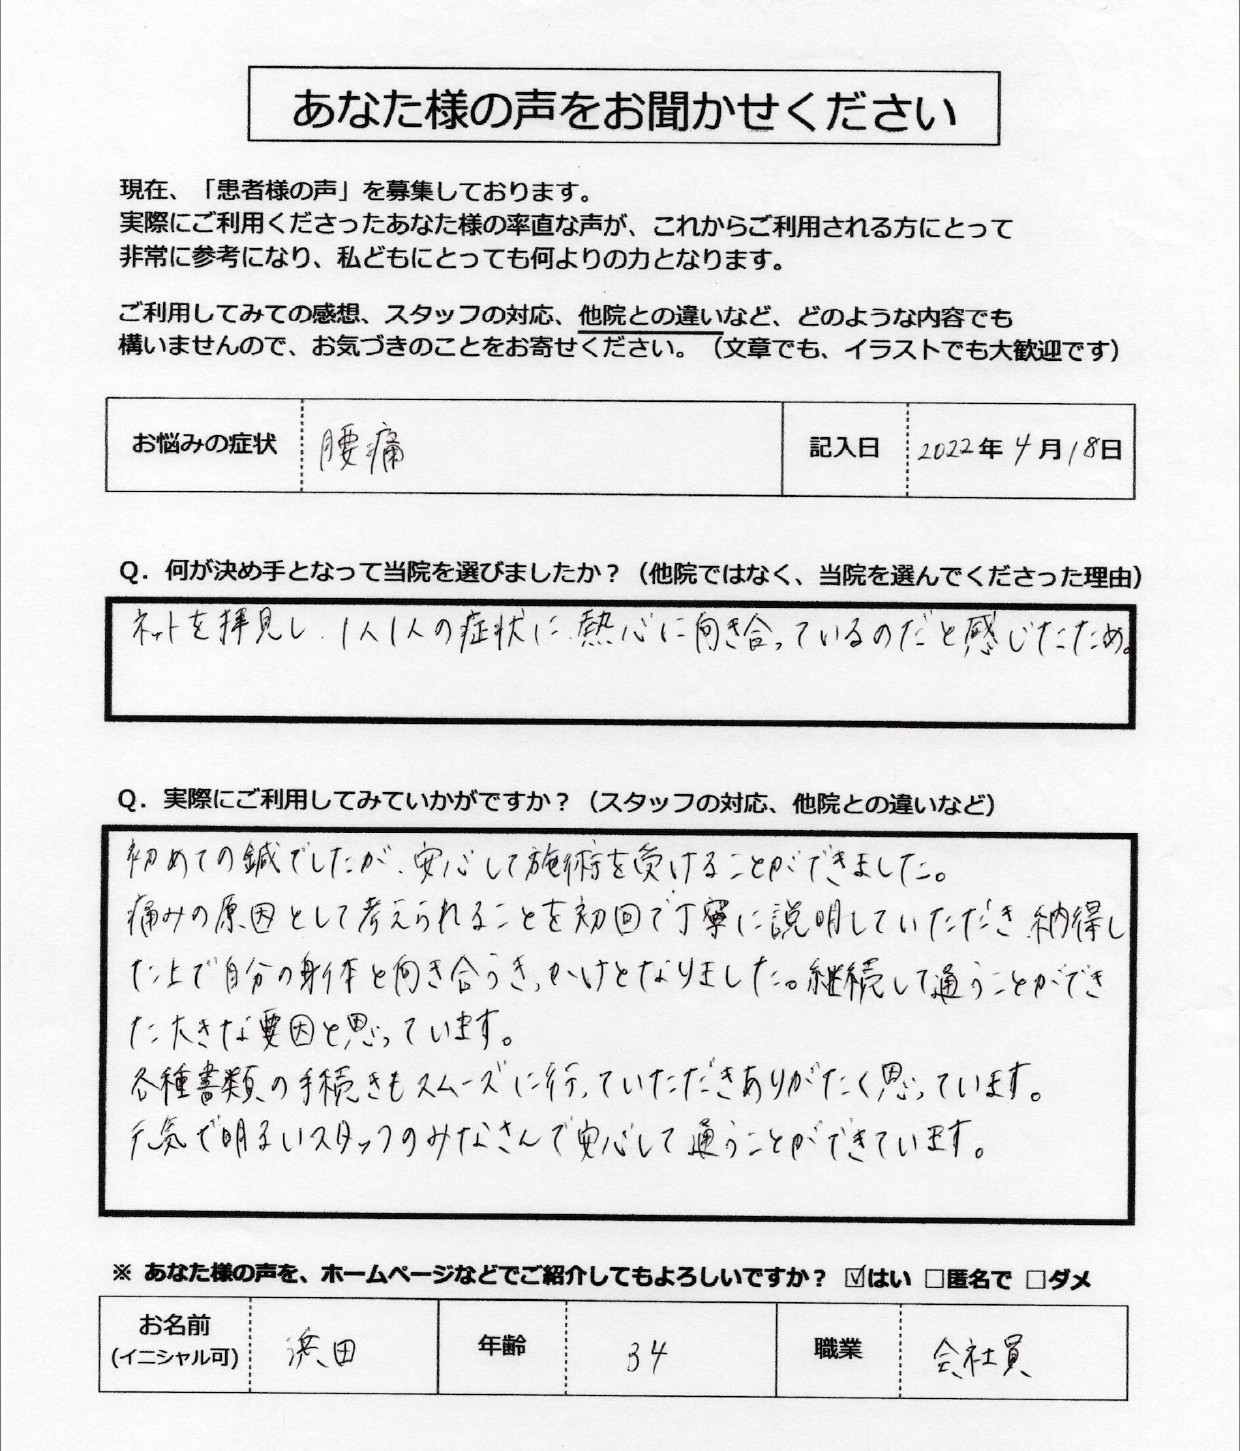 あなた様の声をお聞かせください
現在、「患者様の声」を募集しております。
実際にご利用くださったあなた様の率直な声が、これからご利用される方にとって
非常に参考になり、私どもにとっても何よりの力となります。
ご利用してみての感想、スタッフの対応、他院との違いなど、どのような内容でも
構いませんので、お気づきのことをお寄せください。（文章でも、イラストでも大歓迎です）
お悩みの症状 腰痛 記入日 2022年4月18日
Q．何が決め手となって当院を選びましたか？（他院ではなく、当院を選んでくださった理由）
ネットを拝見し、1人1人の症状に、熱心に向き合っているのだと感じたため。
Q．実際にご利用してみていかがですか？（スタッフの対応、他院との違いなど）
初めての鍼でしたが、安心して施術を受けることができました。
痛みの原因として考えられることを初回で丁寧に説明していただき、納得し
た上で自分の身体と向き合うきっかけとなりました。継続して通うことができ
た大きな要因と思っています。
各種書類の手続きもスムーズに行っていただきありがたく思っています。
元気で明るいスタッフのみなさんで安心して通うことができています。
※ あなた様の声を、ホームページなどでご紹介してもよろしいですか？ ☑はい □匿名で □ダメ
お名前 浜田 年齢 34 職業 会社員
(イニシャル可)